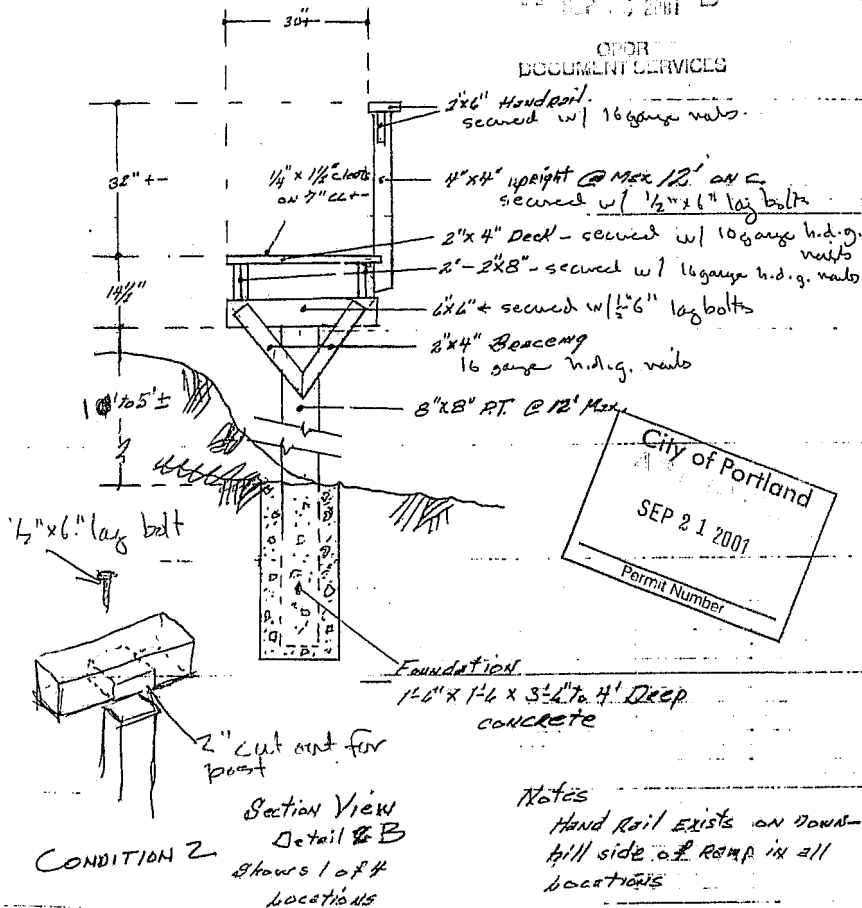 30"+-
SEP 2001
OPDR
DOCUMENT SERVICES
2"x6" Handrail.
secured w/ 16 gauge nails.
32"+-
1/4" x 1 1/2" cleats
on 7" CC +-
4"x4" upright @ Max 12' on c.
secured w/ 1/2" x 6" lag bolts
2"x4" Deck - secured w/ 10 gauge h.d.g.
nails
2'-2"x8" - secured w/ 16 gauge h.d.g. nails
14 1/2"
6"x6" secured w/ 1/2"6" lag bolts
2"x4" Bracing
16 gauge h.d.g. nails
1' to 5' ±
8"x8" P.T. @ 12' Max.
City of Portland
SEP 21 2001
Permit Number
1/2" x 6" lag bolt
Foundation
1'-6" x 1'-6 x 3'-6" to 4' Deep
CONCRETE
2" cut out for
post
CONDITION 2
Section View
Detail B
Shows 1 of 4
Locations
Notes
Hand Rail Exists on Down-
hill side of Ramp in all
Locations